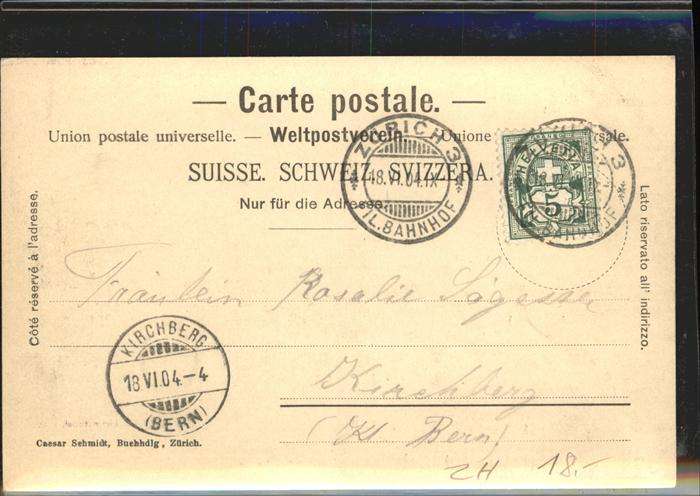 — Carte postale. —
Union postale universelle. — Weltpostverein. — Unione postale universale.
SUISSE. SCHWEIZ. SVIZZERA.
Nur für die Adresse.
Côté réservé à l'adresse.
Lato riservato all' indirizzo.
ZÜRICH 3
18.VI.04.IX
FIL.BAHNHOF
HELVETIA
5
Fräulein Rosalie
Kirchberg
(Kt. Bern)
KIRCHBERG
18 VI.04.–4
(BERN)
Caesar Schmidt, Buchhdlg., Zürich.
ZH 18.-